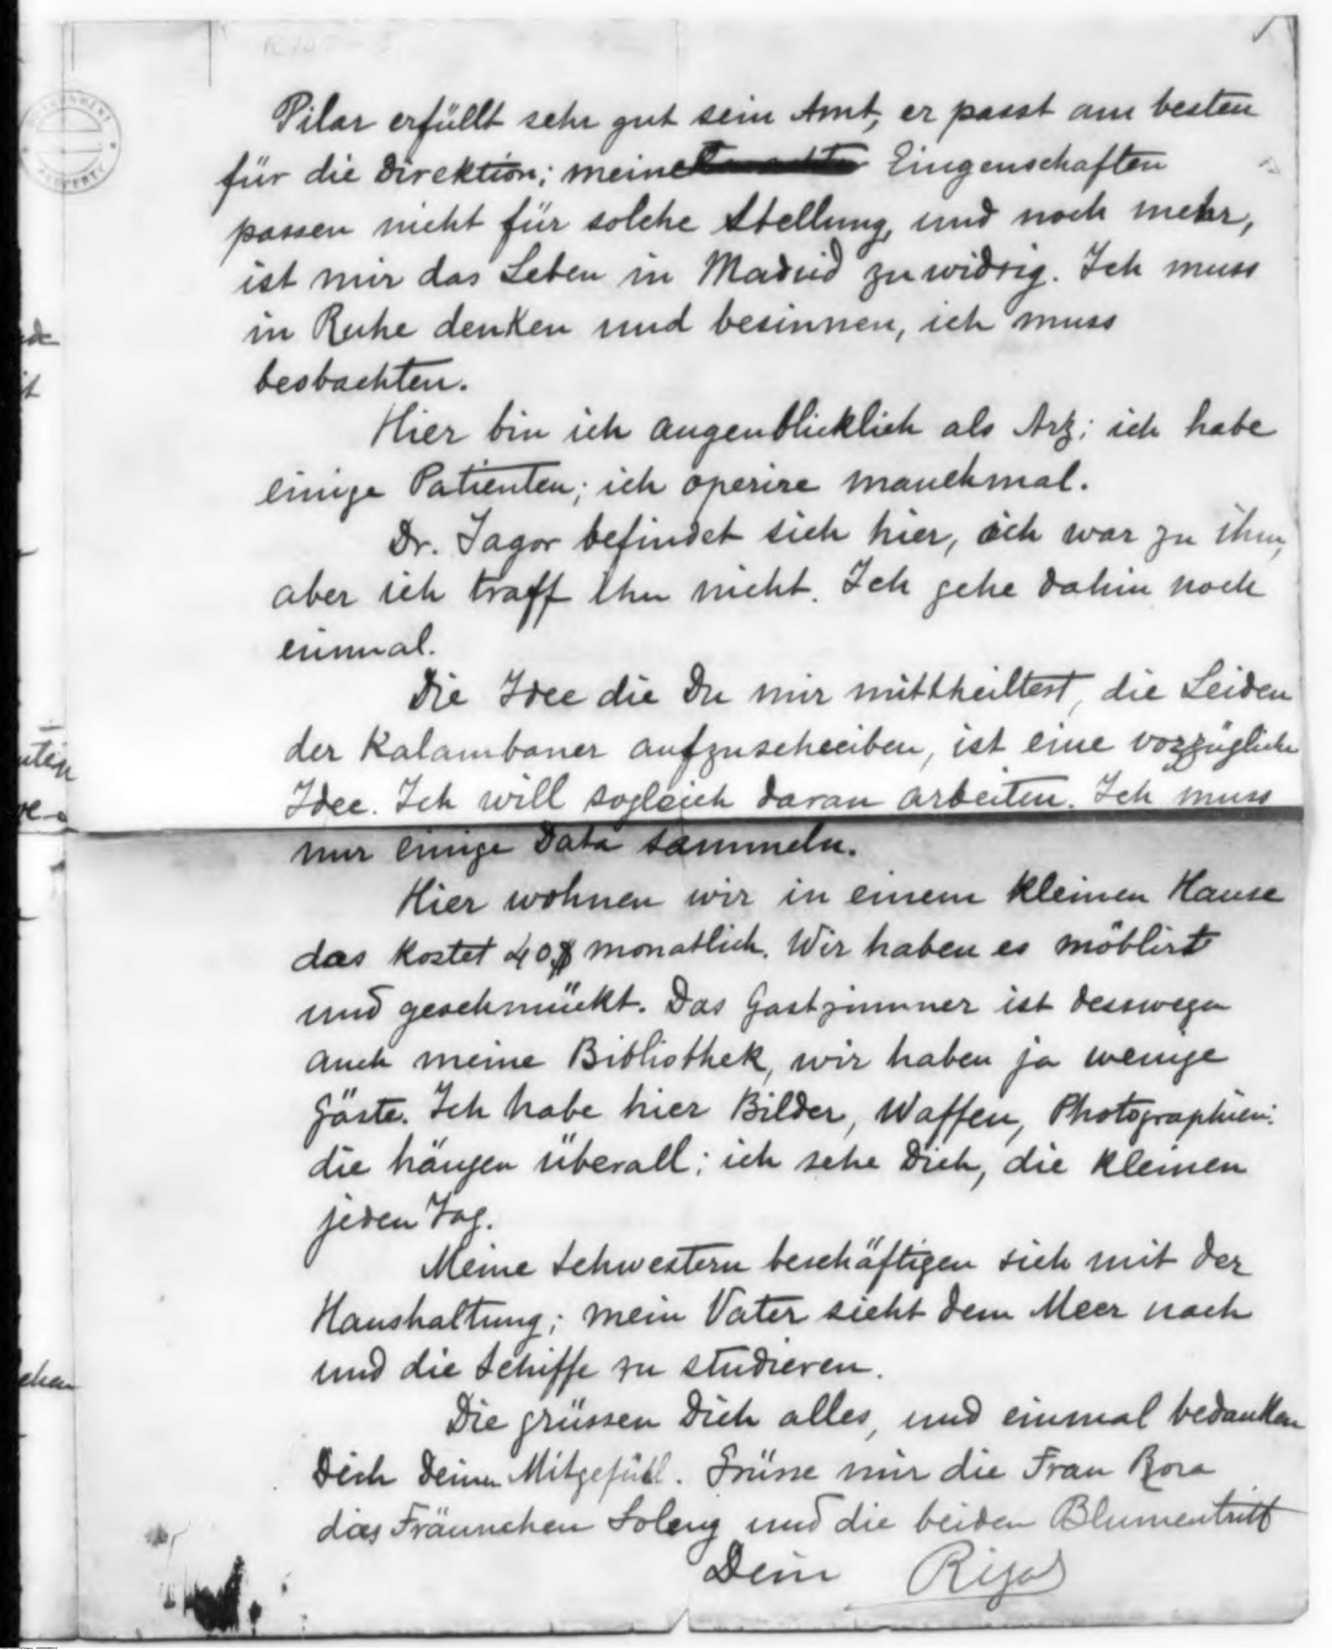 Pilar erfüllt sehr gut sein Amt, er passt am besten
für die Direktion; meine Eingenschaften
passen nicht für solche Stellung, und noch mehr,
ist mir das Leben in Madrid zuwidrig. Ich muss
in Ruhe denken und besinnen, ich muss
beobachten.
Hier bin ich augenblicklich als Arz; ich habe
einige Patienten; ich operire manchmal.
Dr. Jagor befindet sich hier, ich war zu ihm,
aber ich traff ihn nicht. Ich gehe dahin noch
einmal.
Die Idee die Du mir mittheiltest, die Leiden
der Kalambaner aufzuschreiben, ist eine vorzügliche
Idee. Ich will sogleich daran arbeiten. Ich muss
nur einige Data sammeln.
Hier wohnen wir in einem kleinen Hause
das kostet 40$ monatlich. Wir haben es möblirt
und geschmückt. Das Gastzimmer ist desswegen
auch meine Bibliothek, wir haben ja wenige
Gäste. Ich habe hier Bilder, Waffen, Photographien:
die hängen überall; ich sehe Dich, die kleinen
jeden Tag.
Meine Schwestern beschäftigen sich mit der
Haushaltung; mein Vater sieht dem Meer nach
und die Schiffe zu studieren.
Die grüssen Dich alles, und einmal bedanken
Dich Deinen Mitgefühl. Grüsse mir die Frau Rosa
das Fräunchen Loleng und die beiden Blumentritt
Dein Rizal